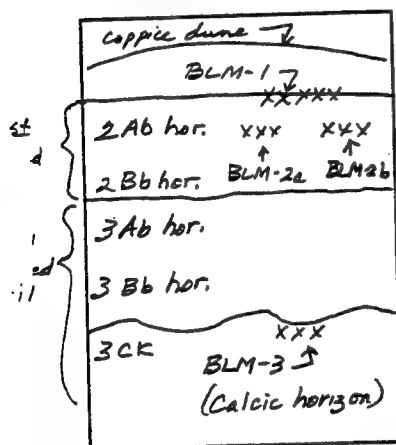 coppice dune
BLM-1
xxxxx
2 Ab hor. xxx xxx
2 Bb hor. BLM-2a BLM-2b
3 Ab hor.
3 Bb hor.
xxx
3CK
BLM-3
(Calcic horizon)